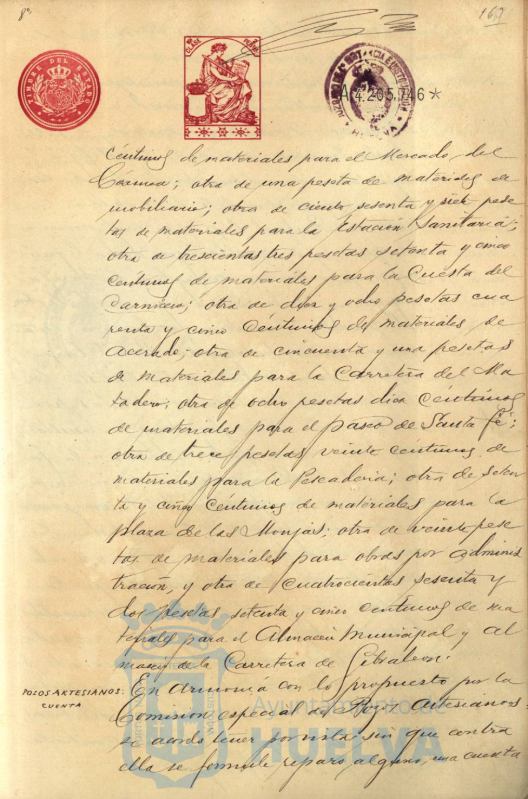 8ª
167
TIMBRE DEL ESTADO
8ª CLASE
A4.205.746*
HUELVA
céntimos de materiales para el Mercado del
Carmen; otra de una peseta de materiales de
mobiliario; otra de ciento sesenta y siete pese
tas de materiales para la Estación Sanitaria;
otra de trescientas tres pesetas setenta y cinco
céntimos de materiales para la Cuesta del
Carnicero; otra de diez y ocho pesetas cua
renta y cinco céntimos de materiales de
acerado; otra de cincuenta y una pesetas
de materiales para la Carretera del Ma
tadero; otra de ocho pesetas diez céntimos
de materiales para el paseo de Santa Fé;
otra de trece pesetas veinte céntimos de
materiales para la Pescadería; otra de seten
ta y cinco céntimos de materiales para la
plaza de las Monjas; otra de veinte pese
tas de materiales para obras por adminis
tración, y otra de cuatrocientas sesenta y
dos pesetas setenta y cinco céntimos de ma
teriales para el Almacén Municipal y al
macén de la Carretera de Gibraleon.
POZOS ARTESIANOS: CUENTA
En armonía con lo propuesto por la
Comisión especial de Pozos Artesianos:
se acordó tener por vista sin que contra
ella se formule reparo alguno, una cuenta
Ayuntamiento de
HUELVA